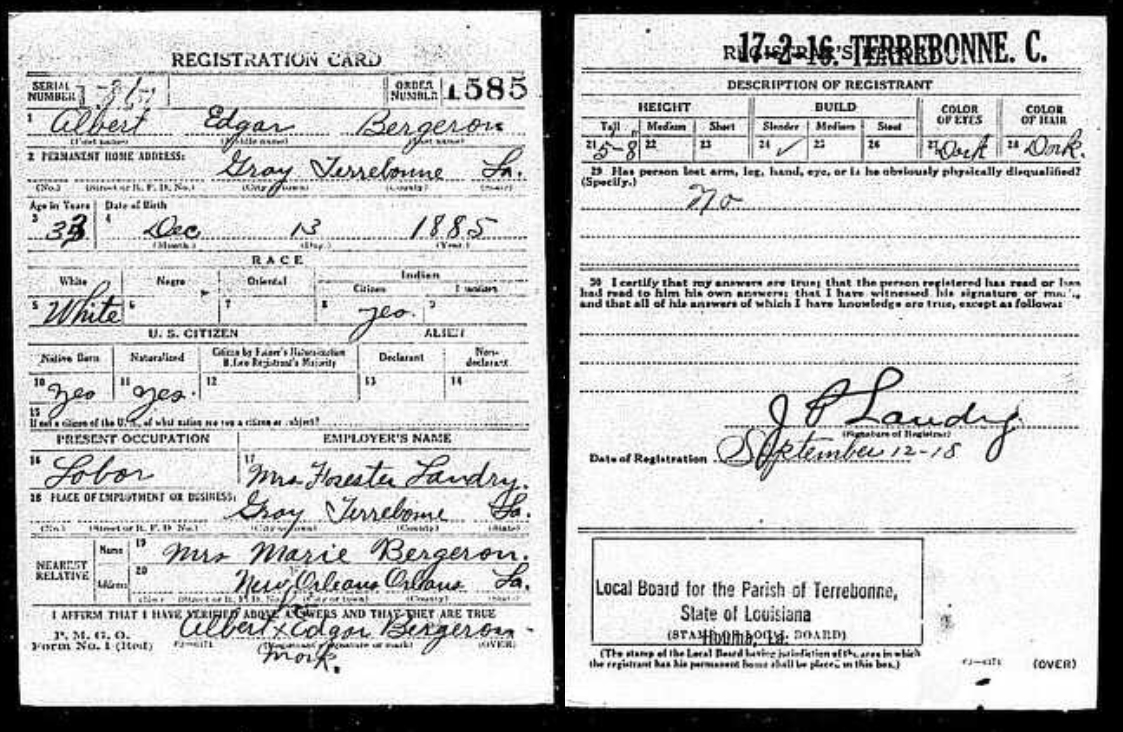 REGISTRATION CARD
SERIAL NUMBER ORDER NUMBER 1585
1 Albert Edgar Bergeron
(First name) (Middle name) (Last name)
2 PERMANENT HOME ADDRESS:
Gray Terrebonne La.
(No.) (Street or R. F. D. No.) (City or town) (County) (State)
Age in Years Date of Birth
3 4 Dec 13 1885
(Month.) (Day.) (Year.)
RACE
White Negro Oriental Indian
Citizen
5 White 6 7 8 yes. 9
U. S. CITIZEN ALIEN
Native Born Naturalized Citizen by Father's Naturalization Before Registrant's Majority Declarant Non-declarant
10 Yes 11 yes. 12 13 14
15 If not a citizen of the U. S., of what nation are you a citizen or subject?
PRESENT OCCUPATION EMPLOYER'S NAME
16 Lobor 17 Mrs Forester Landry.
18 PLACE OF EMPLOYMENT OR BUSINESS:
Gray Terrebonne La.
(No.) (Street or R. F. D. No.) (City or town) (County) (State)
NEAREST RELATIVE Name 19 Mrs Marie Bergeron.
Address 20 New Orleans Orleans La.
(No.) (Street or R. F. D. No.) (City or town) (County) (State)
I AFFIRM THAT I HAVE VERIFIED ABOVE ANSWERS AND THAT THEY ARE TRUE
P. M. G. O.
Form No. 1 (Red) Albert x Edgar Bergeron
(Registrant's signature or mark) (OVER)
mark.
17-2-16. TERREBONNE. C.
REGISTRAR'S REPORT
DESCRIPTION OF REGISTRANT
HEIGHT BUILD COLOR OF EYES COLOR OF HAIR
Tall Medium Short Slender Medium Stout
21 5-8 22 23 24 ✓ 25 26 27 Dark 28 Dark.
29 Has person lost arm, leg, hand, eye, or is he obviously physically disqualified?
(Specify.)
No
30 I certify that my answers are true; that the person registered has read or has
had read to him his own answers; that I have witnessed his signature or mark,
and that all of his answers of which I have knowledge are true, except as follows:
J P Landry
(Signature of Registrar)
Date of Registration September 12-18
Local Board for the Parish of Terrebonne,
State of Louisiana
Houma, La.
(STAMP OF LOCAL BOARD)
(The stamp of the Local Board having jurisdiction of the area in which
the registrant has his permanent home shall be placed in this box.)
(OVER)